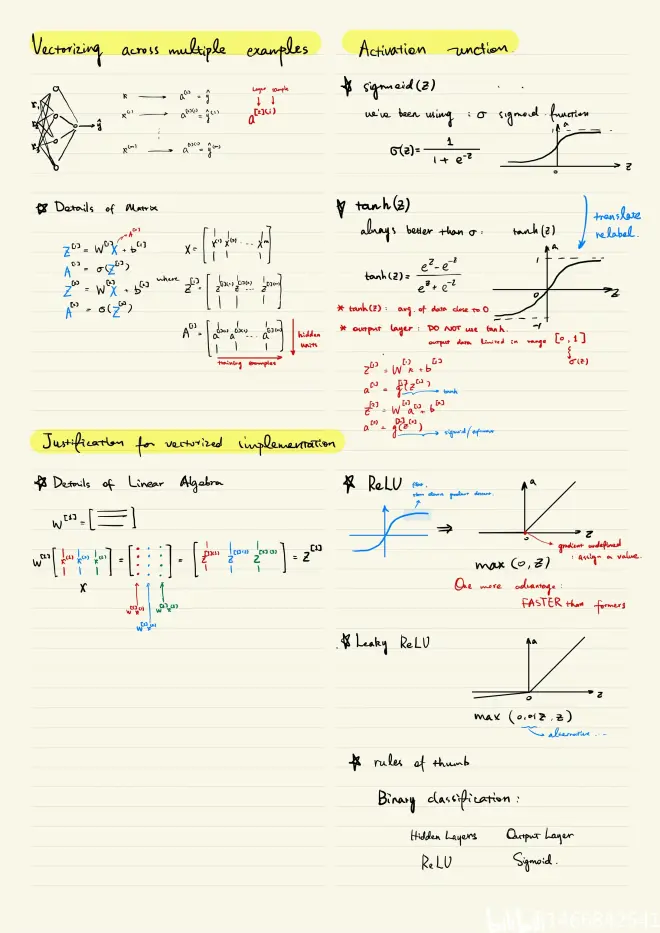 Vectorizing across multiple examples
x → a^[2] = ŷ
x^(1) → a^[2](1) = ŷ^(1)
⋮
x^(m) → a^[2](m) = ŷ^(m)
Layer sample
↓ ↓
a^[2](i)
x₁
x₂
x₃
ŷ
☆ Details of Matrix
Z^[1] = W^[1] X + b^[1]
A^[1] = σ(Z^[1])
Z^[2] = W^[2] X + b^[2]
A^[2] = σ(Z^[2])
A^[0]
where
X = [x^(1) x^(2) ... x^(m)]
Z^[1] = [z^[1](1) z^[1](2) ... z^[1](m)]
A^[1] = [a^[1](1) a^[1](2) ... a^[1](m)]
hidden
units
training examples
Justification for vectorized implementation
☆ Details of Linear Algebra
W^[1] = [ ]
W^[1] [x^(1) x^(2) x^(3)] = [ ] = [Z^[1](1) Z^[1](2) Z^[1](3)] = Z^[1]
X
W^[1]x^(1)
W^[1]x^(2)
W^[1]x^(3)
Activation Function
☆ sigmoid(z)
we've been using : σ sigmoid function
σ(z) = 1 / (1 + e^-z)
a
1
0
z
☆ tanh(z)
always better than σ: tanh(z)
translate
relabel.
tanh(z) = (e^z - e^-z) / (e^z + e^-z)
a
1
0
z
-1
* tanh(z) : avg. of data close to 0
* output layer : DO NOT use tanh.
output data limited in range [0, 1]
σ(z)
z^[1] = W^[1] x + b^[1]
a^[1] = g^[1](z^[1]) → tanh
z^[2] = W^[2] a^[1] + b^[2]
a^[2] = g^[2](z^[2]) → sigmoid/
☆ ReLU
flat.
slow down gradient descent.
⇒
a
0
z
gradient undefined
: Assign a value.
max (0, z)
One more advantage:
FASTER than formers
☆ Leaky ReLU
a
0
z
max (0.01z, z)
alternative ...
☆ rules of thumb
Binary classification :
Hidden Layers Output Layer
ReLU Sigmoid.